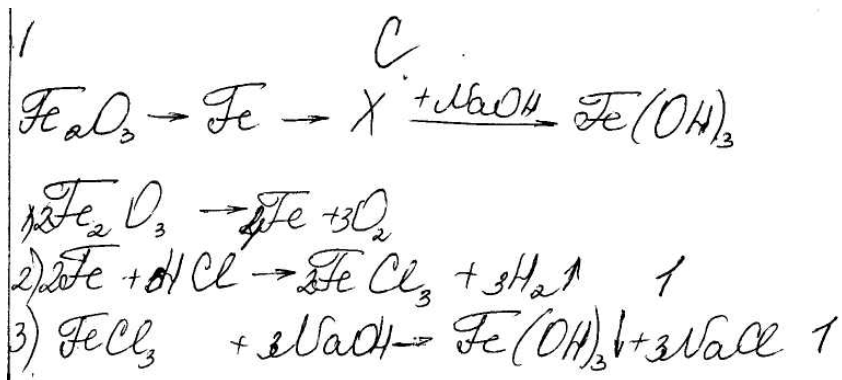 1 C
Fe₂O₃ → Fe → X +NaOH → Fe(OH)₃
1) 2Fe₂O₃ → 4Fe + 3O₂
2) 2Fe + 6HCl → 2FeCl₃ + 3H₂↑ 1
3) FeCl₃ + 3NaOH → Fe(OH)₃↓ + 3NaCl 1